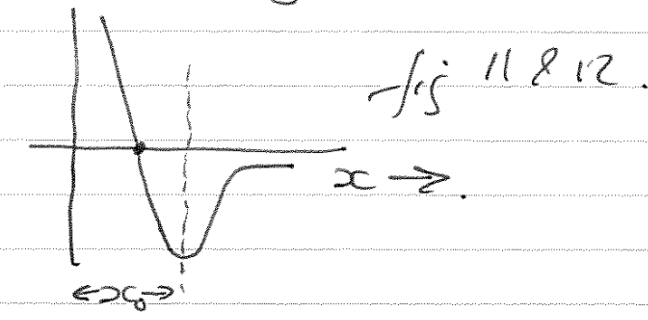 fig 11 & 12.
x →.
←x₀→